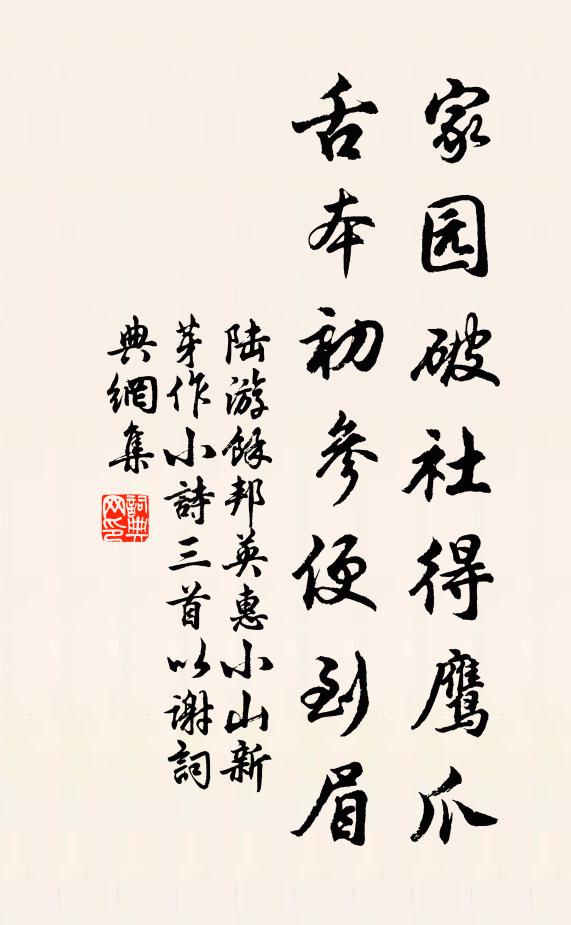 家园破社得鹰爪
舌本初参便到眉
陆游馀邦英惠小山新
芽作小詩三首以谢詞
典網集
詞典
网印